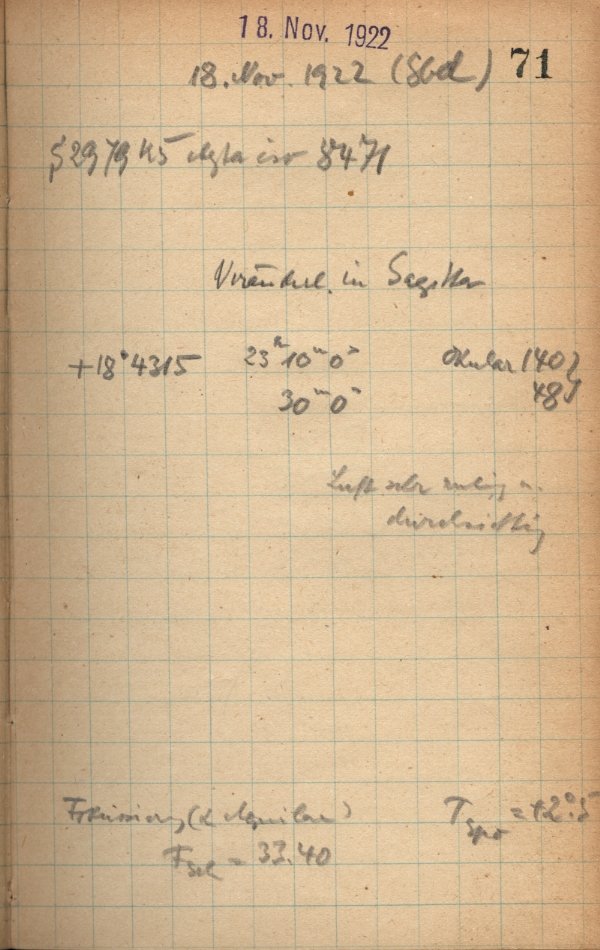 18. Nov. 1922
18. Nov. 1922 (Sbd) 71
8471
Veränderl. in Sagitta
+18°4315 23ʰ10ᵐ0ˢ Okular 140}
30ᵐ0ˢ 48}
Luft sehr ruhig u.
durchsichtig
Fokussierung (α Aquilae) T = +2°.5
F = 33.40